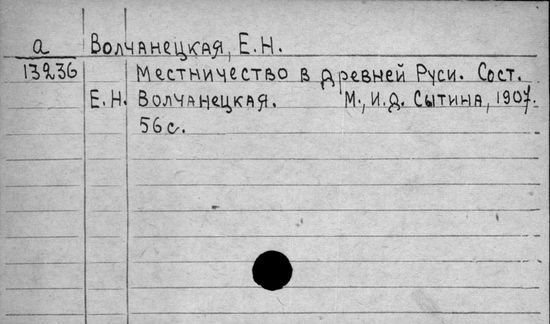 а Волчанецкая, Е.Н.
13236 Местничество в древней Руси. Сост.
Е.Н. Волчанецкая. М., И.Д. Сытина, 1907.
56с.